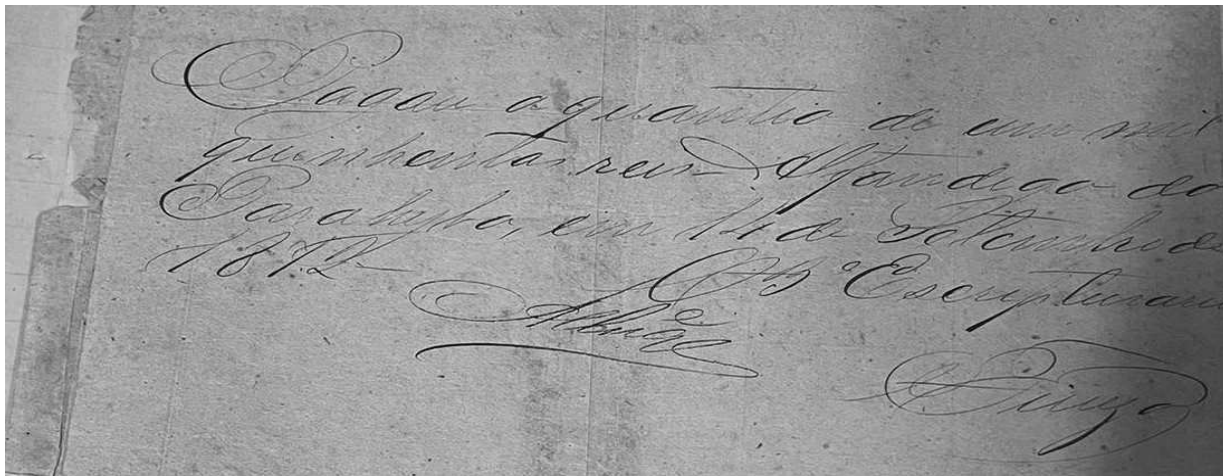 Pagou a quantia de um mil
quinhentos reis Alfandega da
Parahyba, em 14 de Setembro de
1872
O 3º Escripturario